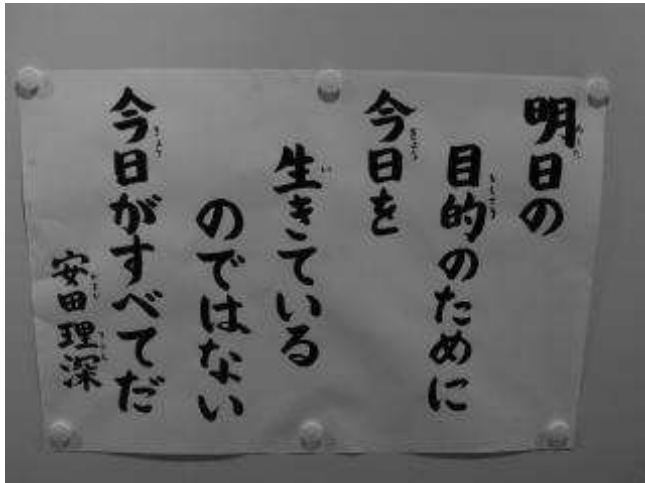 明日の
目的のために
今日を
生きている
のではない
今日がすべてだ
安田理深